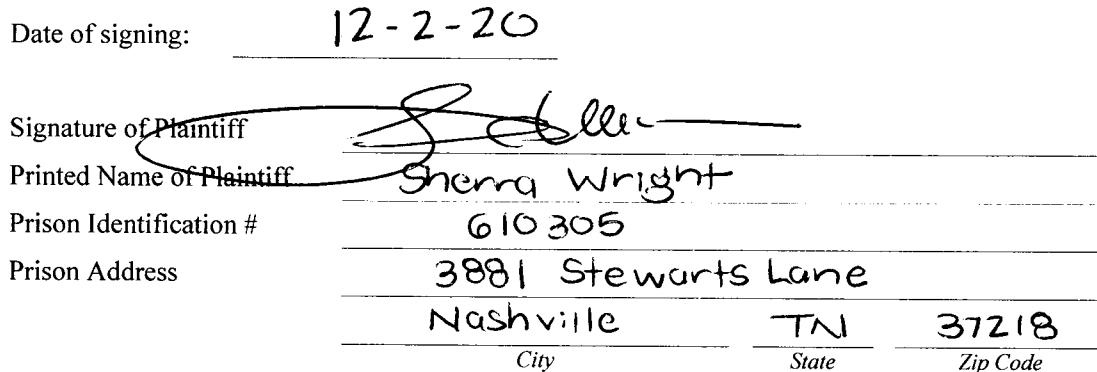 Date of signing: 12-2-20
Signature of Plaintiff
Printed Name of Plaintiff Sherra Wright
Prison Identification # 610305
Prison Address 3881 Stewarts Lane
Nashville TN 37218
City State Zip Code